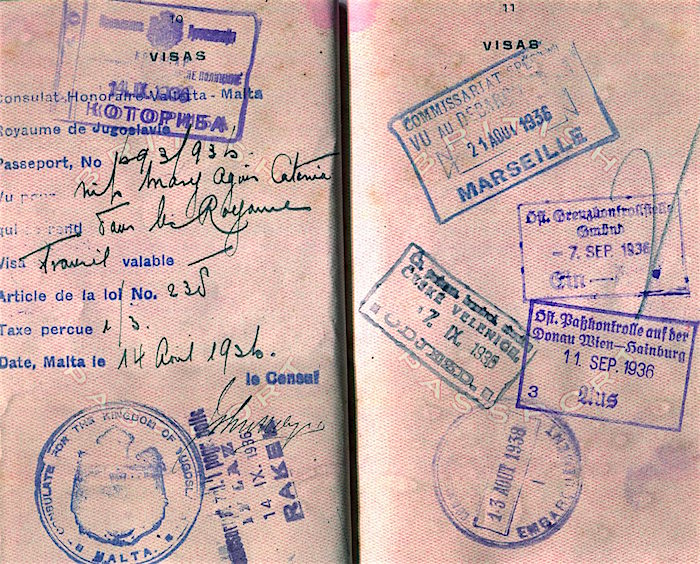 10
VISAS
14 IX. 1936
КОТОРИБА
Consulat Honoraire Valletta - Malta
Royaume de Jugoslavie
Passeport, No 193/936
Vu pour Miss Mary Agius Catania
qui se rend dans le Royaume
Visa Transit valable
Article de la loi No. 238
Taxe percue 1/3.
Date, Malta le 14 Aout 1936.
le Consul
CONSULATE FOR THE KINGDOM OF YUGOSL.
MALTA.
14 IX. 1936
11
VISAS
COMMISSARIAT SPÉCIAL
VU AU DÉBARQ
21 AOUT 1936
MARSEILLE
Öst. Grenzkontrollstelle
Gmünd
- 7. SEP. 1936
Ein
ČESKÉ VELENICE
7 IX. 1936
ODJEZD.
Öst. Paßkontrolle auf der
Donau Wien-Hainburg
11. SEP. 1936
3 Aus
13 AOUT 1938
EMBARQ